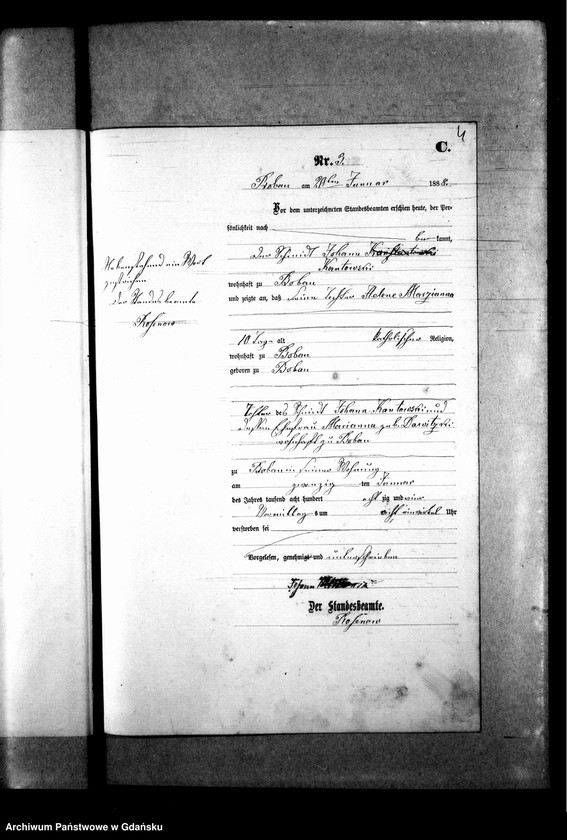 4
C.
Nr. 3.
Boban am 20ten Januar 188
Vor dem unterzeichneten Standesbeamten erschien heute, der Per-
sönlichkeit nach
be kannt,
der Schmidt Johann
Kantowski
wohnhaft zu Boban
und zeigte an, daß seine Tochter Helene Marianna
10 Tage alt katholischer Religion,
wohnhaft zu Boban
geboren zu Boban
Tochter des Schmidt Johann Kantowski und
dessen Ehefrau Marianna geb.
wohnhaft zu Boban
zu Boban in seiner Wohnung
am zwanzig ten Januar
des Jahres tausend acht hundert acht zig und
Vormittags um acht Uhr
verstorben sei
Vorgelesen, genehmigt und unterschrieben
Johann
Der Standesbeamte.
Rosenow
Nebenstehend ein Wort
gestrichen
Der Standesbeamte
Rosenow
Archiwum Państwowe w Gdańsku